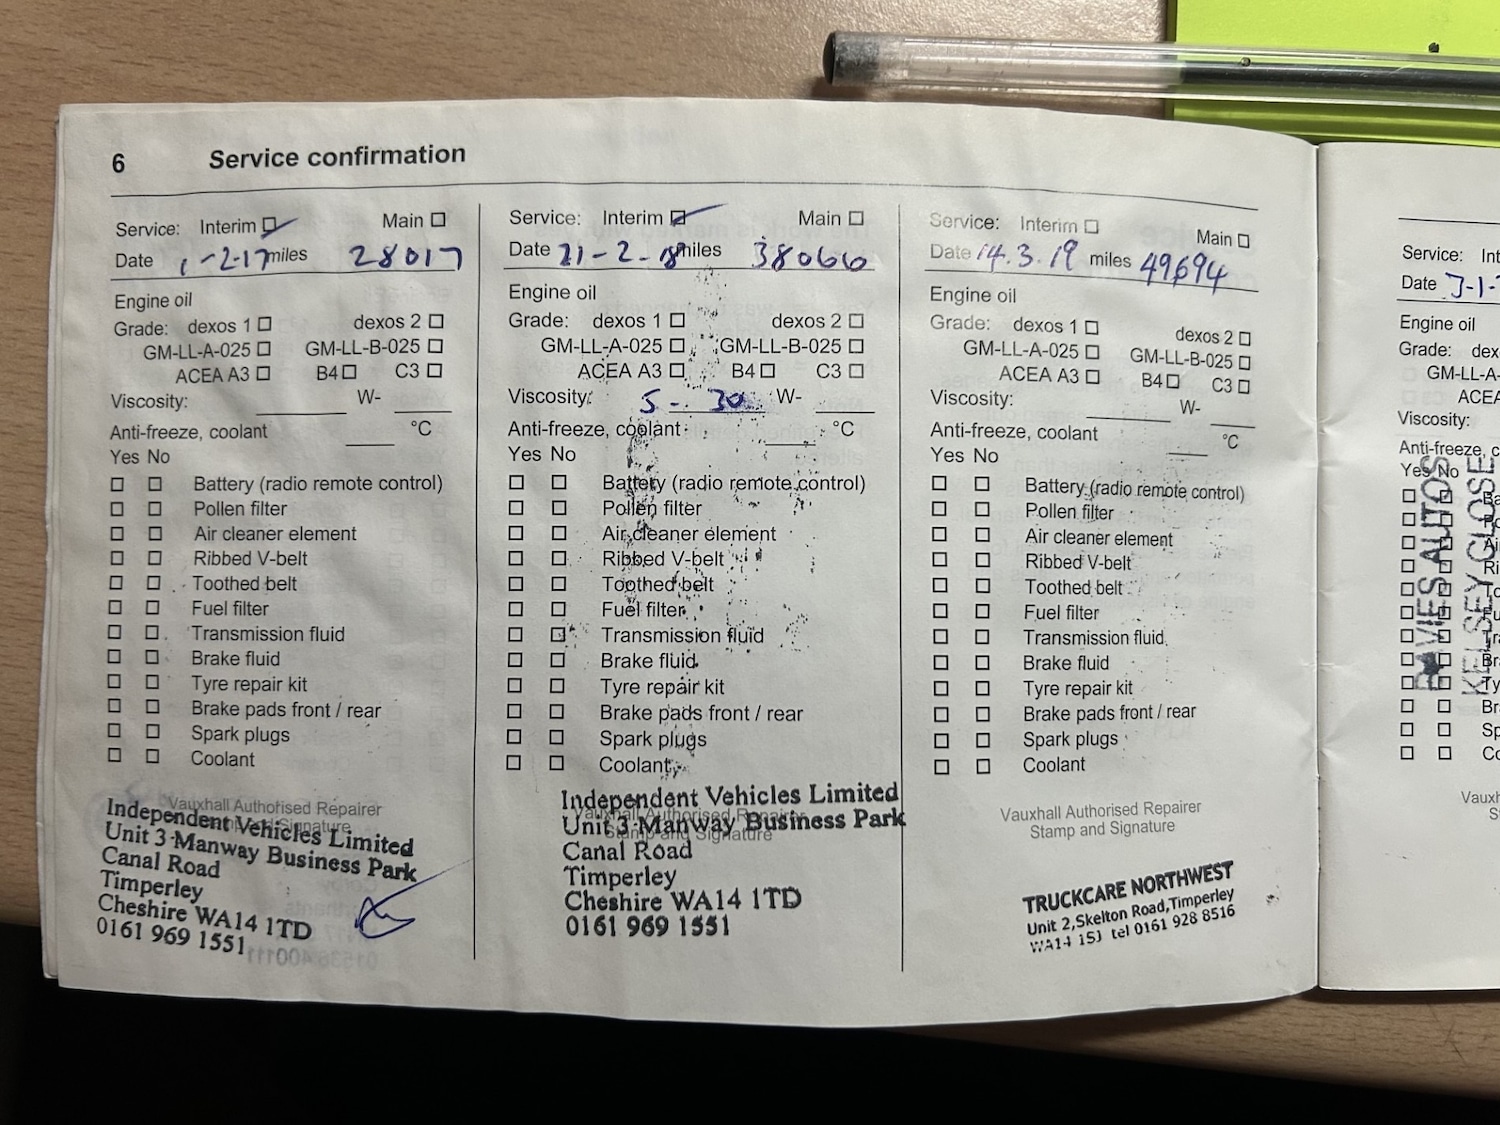 6 Service confirmation
Service: Interim Main
Date 1-2-17 miles 28017
Engine oil
Grade: dexos 1 dexos 2
GM-LL-A-025 GM-LL-B-025
ACEA A3 B4 C3
Viscosity: W-
Anti-freeze, coolant °C
Yes No
Battery (radio remote control)
Pollen filter
Air cleaner element
Ribbed V-belt
Toothed belt
Fuel filter
Transmission fluid
Brake fluid
Tyre repair kit
Brake pads front / rear
Spark plugs
Coolant
Vauxhall Authorised Repairer
Stamp and Signature
Independent Vehicles Limited
Unit 3 Manway Business Park
Canal Road
Timperley
Cheshire WA14 1TD
0161 969 1551
Service: Interim Main
Date 21-2-18 miles 38066
Engine oil
Grade: dexos 1 dexos 2
GM-LL-A-025 GM-LL-B-025
ACEA A3 B4 C3
Viscosity: 5-30 W-
Anti-freeze, coolant °C
Yes No
Battery (radio remote control)
Pollen filter
Air cleaner element
Ribbed V-belt
Toothed belt
Fuel filter
Transmission fluid
Brake fluid
Tyre repair kit
Brake pads front / rear
Spark plugs
Coolant
Vauxhall Authorised Repairer
Stamp and Signature
Independent Vehicles Limited
Unit 3 Manway Business Park
Canal Road
Timperley
Cheshire WA14 1TD
0161 969 1551
Service: Interim Main
Date 14.3.19 miles 49694
Engine oil
Grade: dexos 1 dexos 2
GM-LL-A-025 GM-LL-B-025
ACEA A3 B4 C3
Viscosity: W-
Anti-freeze, coolant °C
Yes No
Battery (radio remote control)
Pollen filter
Air cleaner element
Ribbed V-belt
Toothed belt
Fuel filter
Transmission fluid
Brake fluid
Tyre repair kit
Brake pads front / rear
Spark plugs
Coolant
Vauxhall Authorised Repairer
Stamp and Signature
TRUCKCARE NORTHWEST
Unit 2, Skelton Road, Timperley
WA14 1SJ tel 0161 928 8516
Service: Int
Date
Engine oil
Grade: dex
GM-LL-A
ACEA
Viscosity:
Anti-freeze, c
Yes No
DAVIES AUTOS
KELSEY CLOSE